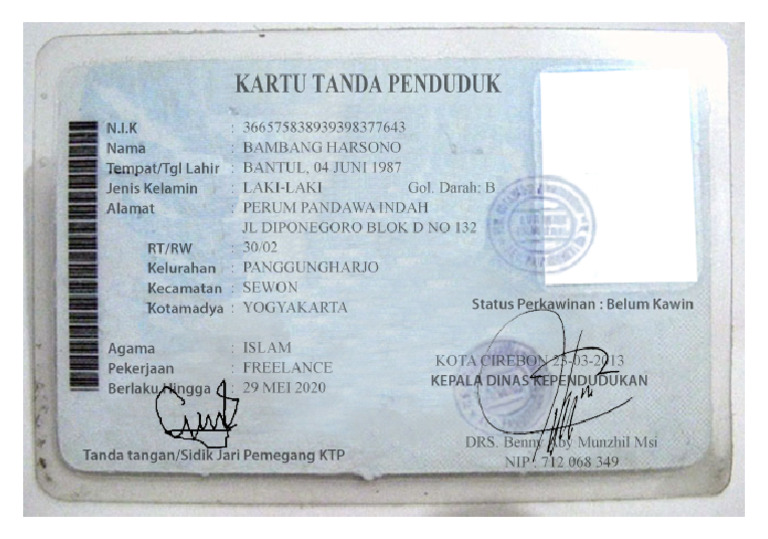 KARTU TANDA PENDUDUK
N.I.K : 366575838939398377643
Nama : BAMBANG HARSONO
Tempat/Tgl Lahir : BANTUL, 04 JUNI 1987
Jenis Kelamin : LAKI-LAKI Gol. Darah: B
Alamat : PERUM PANDAWA INDAH
JL DIPONEGORO BLOK D NO 132
RT/RW : 30/02
Kelurahan : PANGGUNGHARJO
Kecamatan : SEWON
Kotamadya : YOGYAKARTA
Status Perkawinan : Belum Kawin
Agama : ISLAM
Pekerjaan : FREELANCE
Berlaku Hingga : 29 MEI 2020
KOTA CIREBON 23-03-2013
KEPALA DINAS KEPENDUDUKAN
DRS. Benny Aby Munzhil Msi
NIP : 712 068 349
Tanda tangan/Sidik Jari Pemegang KTP